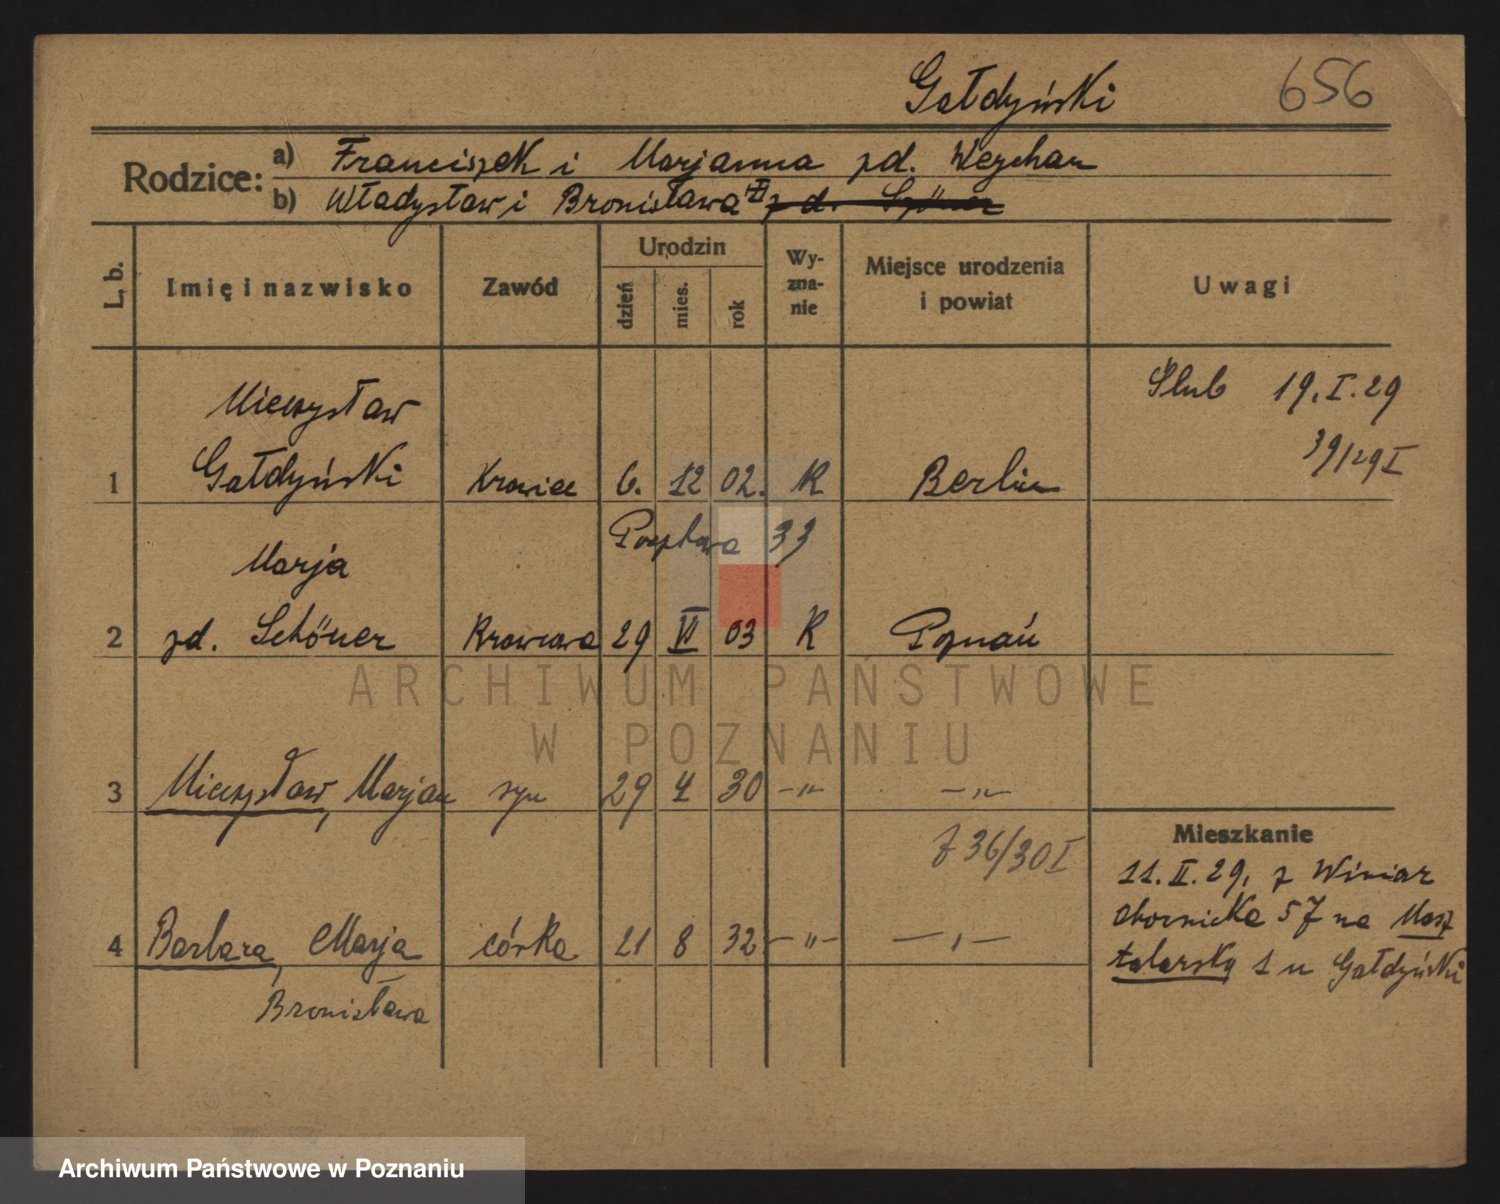 Gałdyński 656
Rodzice: a) Franciszek i Marjanna zd. Weychan
b) Władysław i Bronisława
L. b. Imię i nazwisko Zawód Urodzin dzień mies. rok Wy-zna-nie Miejsce urodzenia i powiat Uwagi
Ślub 19.I.29
39/29 I
Mieczysław
1 Gałdyński Krawiec 6. 12 02. K Berlin
Pocztowa 33
Marja
2 zd. Schöner Krawcowa 29 VI 03 K Poznań
ARCHIWUM PAŃSTWOWE
W POZNANIU
3 Mieczysław, Marjan syn 29 4 30 -"- -"-
Z 36/30 I
Mieszkanie
11.II.29, z Winiar
Obornicka 57 na Masz
talarską 1 u Gałdyński
4 Barbara, Marja córka 21 8 32 -"- -"-
Bronisława
Archiwum Państwowe w Poznaniu